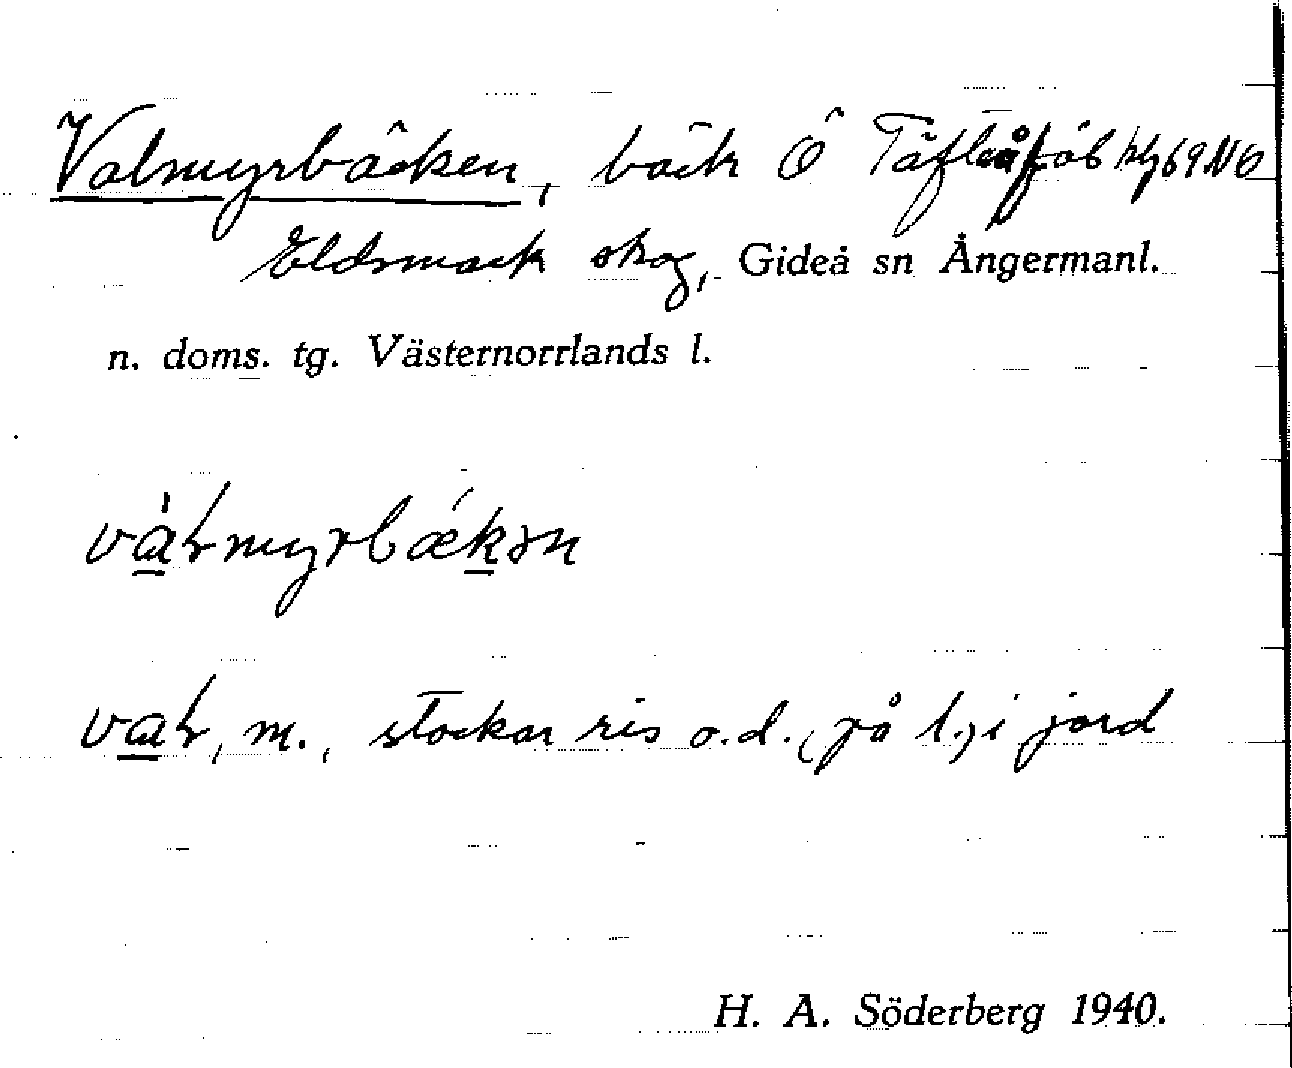 Valmyrbäcken, bäck Ö Täfleå
Eldsmark skog, Gideå sn Ångermanl.
n. doms. tg. Västernorrlands l.
stockar ris o.d. (på l.) i jord
H. A. Söderberg 1940.